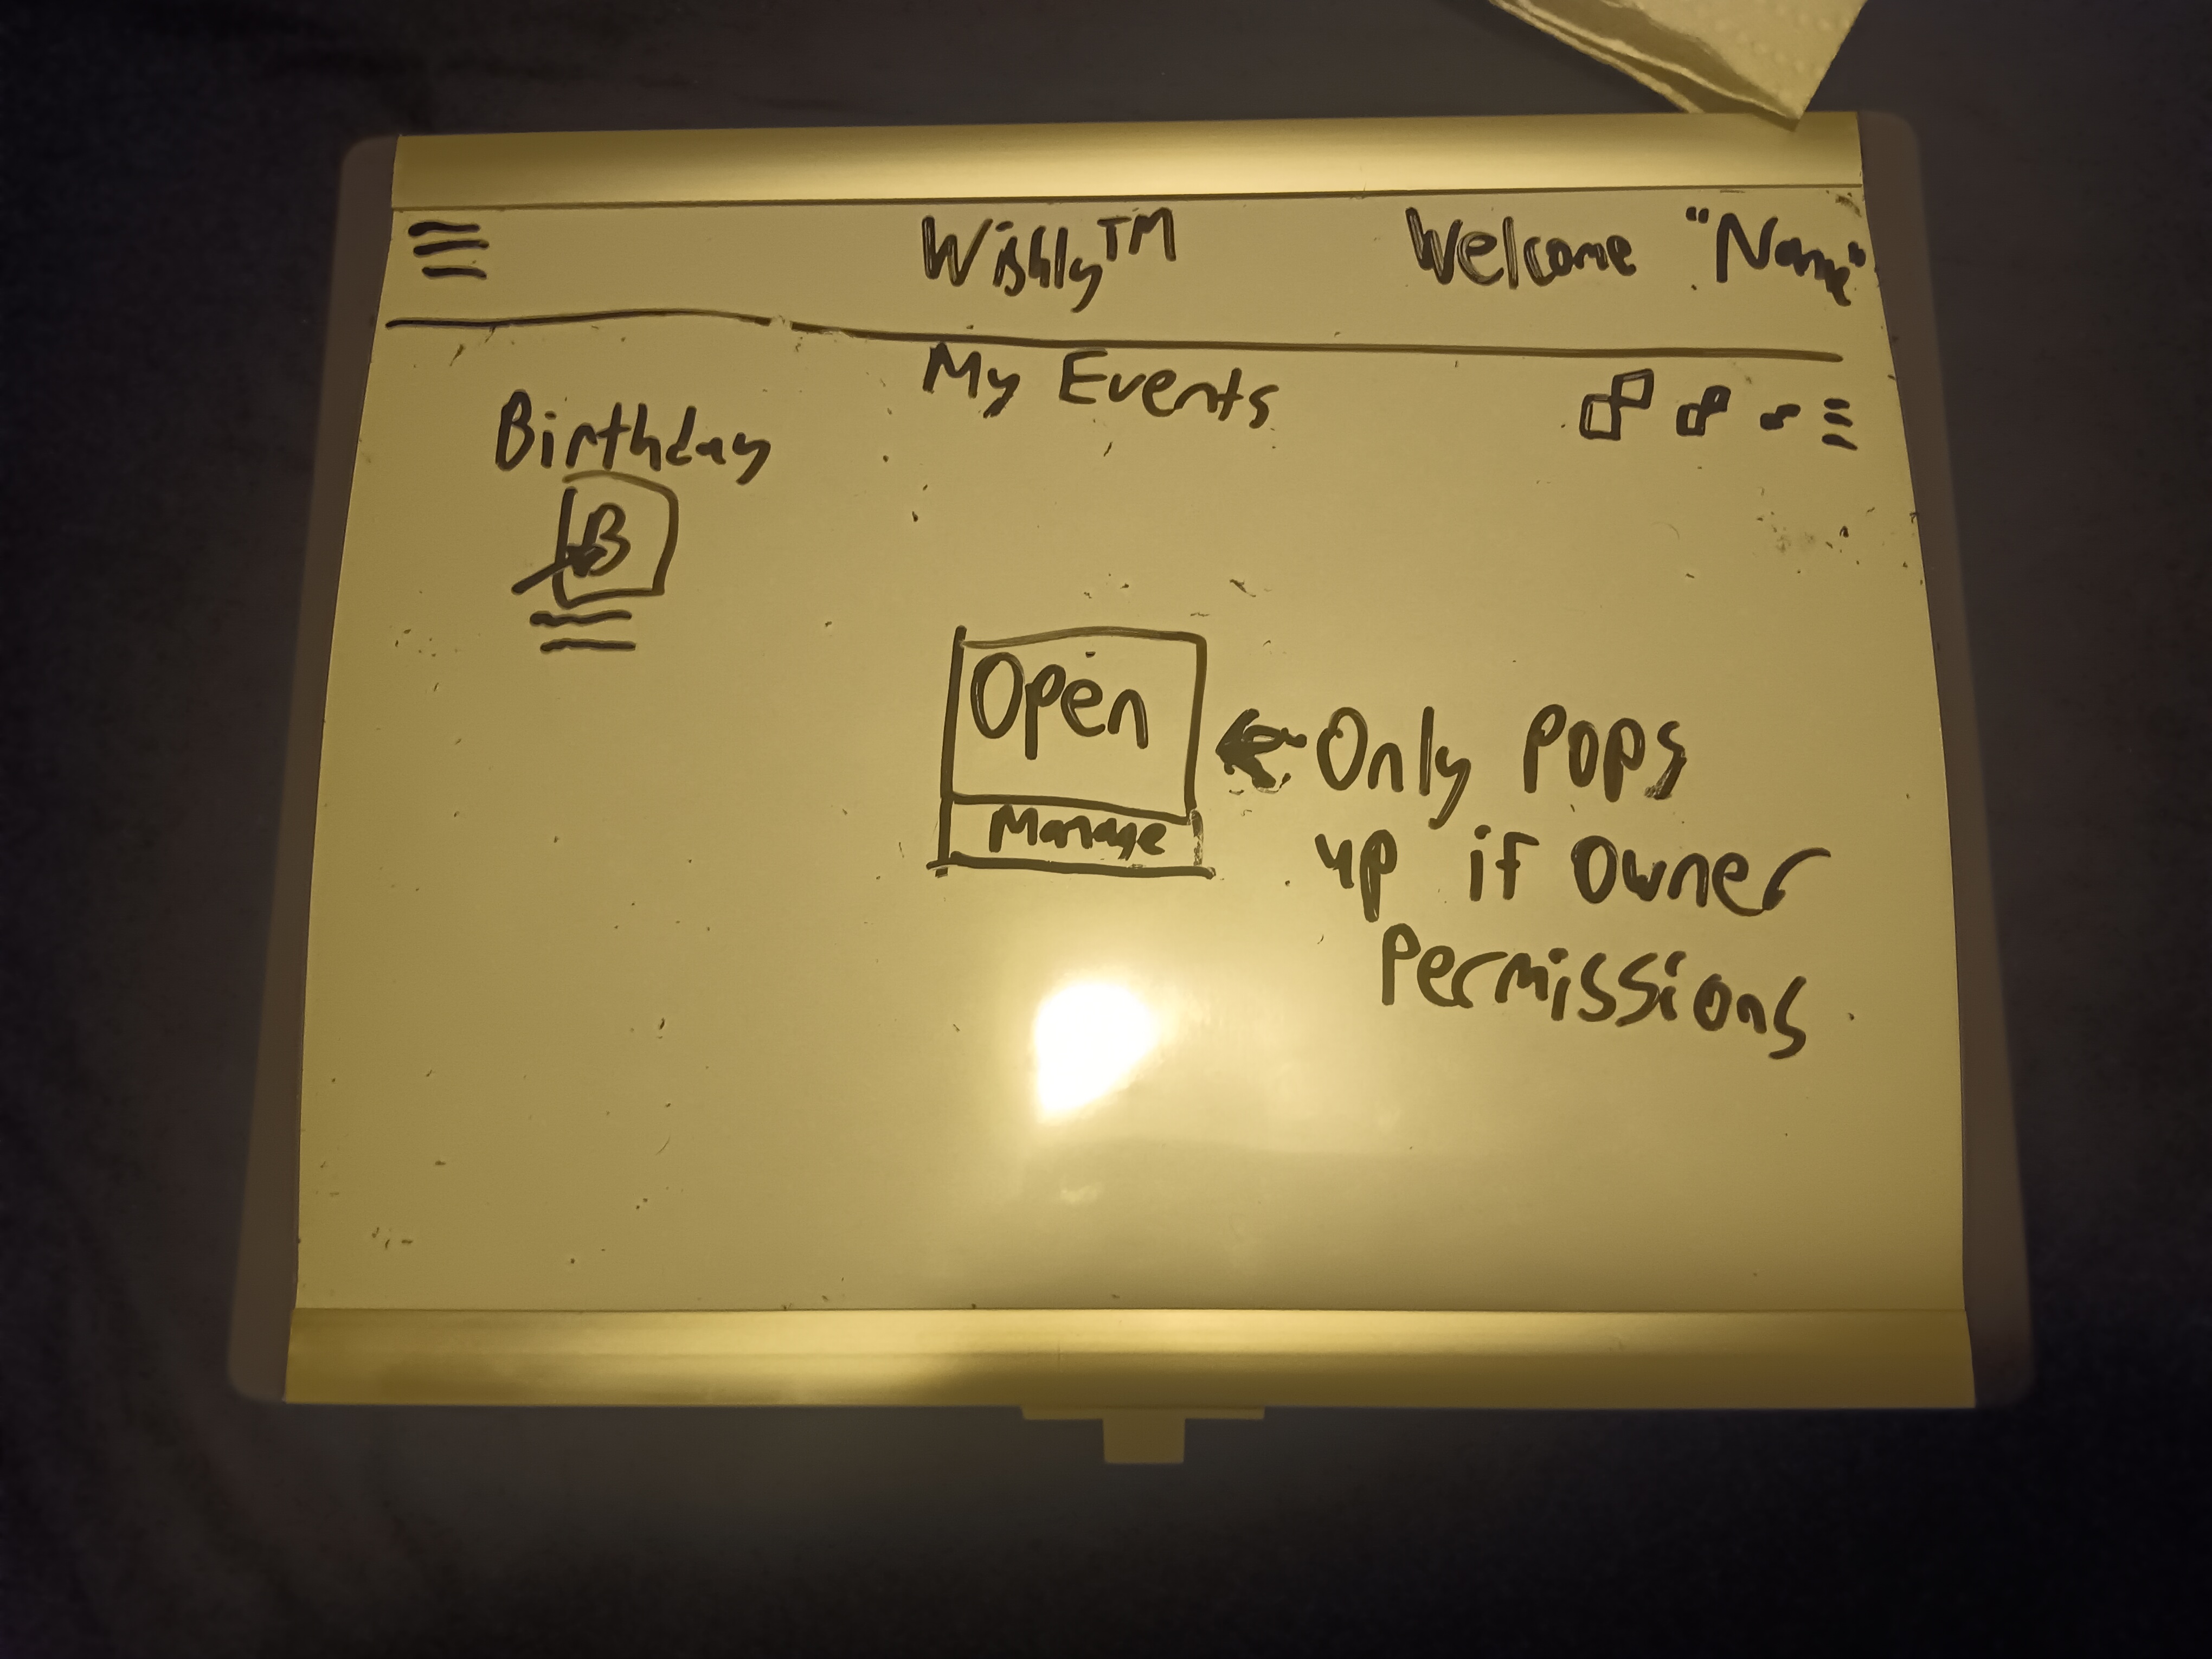 Wishly™ Welcome "Name"
My Events
Birthday
B
Open
Manage
Only pops
up if owner
Permissions